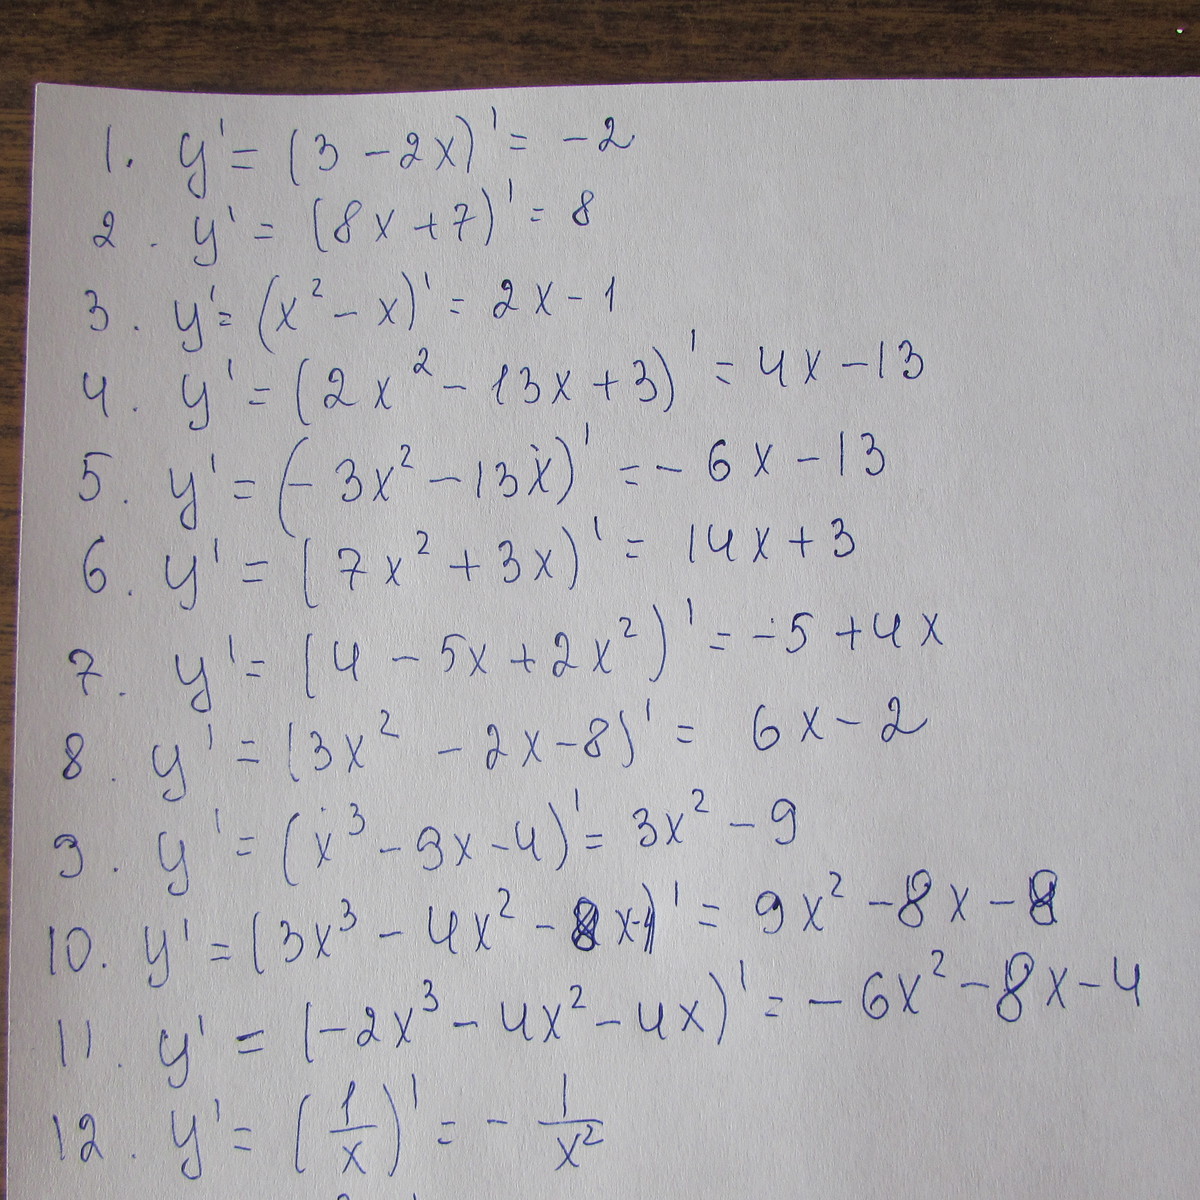 1. y' = (3 - 2x)' = -2
2. y' = (8x + 7)' = 8
3. y' = (x² - x)' = 2x - 1
4. y' = (2x² - 13x + 3)' = 4x - 13
5. y' = (-3x² - 13x)' = -6x - 13
6. y' = (7x² + 3x)' = 14x + 3
7. y' = (4 - 5x + 2x²)' = -5 + 4x
8. y' = (3x² - 2x - 8)' = 6x - 2
9. y' = (x³ - 9x - 4)' = 3x² - 9
10. y' = (3x³ - 4x² - 8x )' = 9x² - 8x - 8
11. y' = (-2x³ - 4x² - 4x)' = -6x² - 8x - 4
12. y' = (1/x)' = - 1/x²